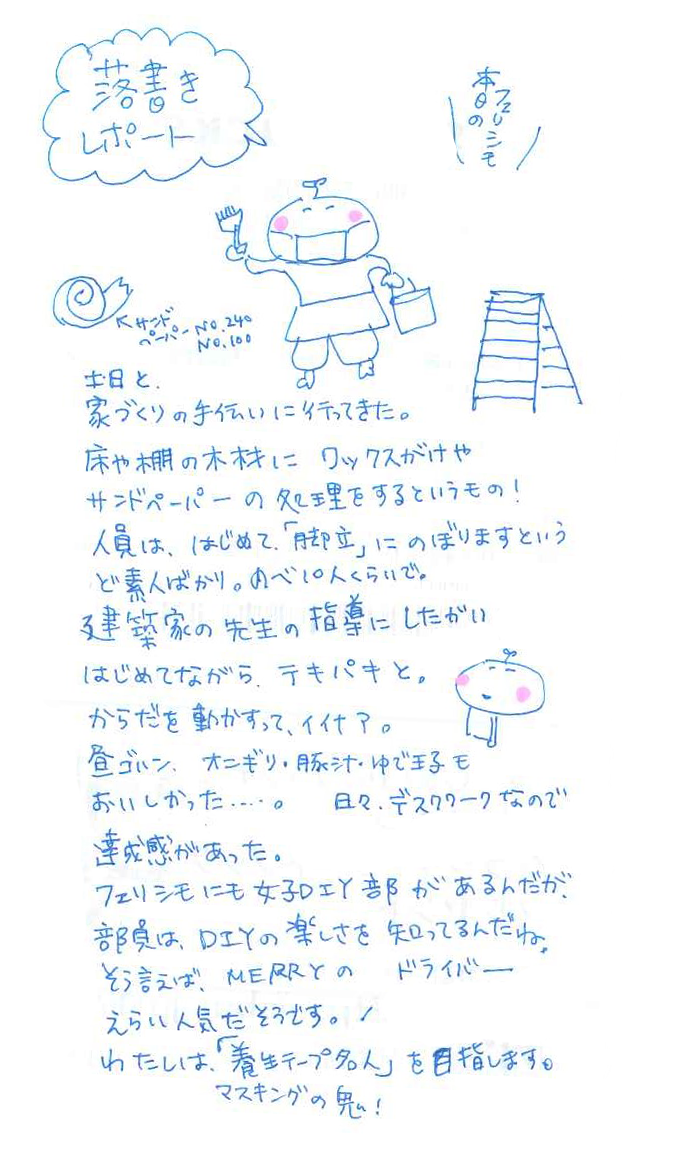 落書き
レポート
本日の
フェリシモ
サンド
ペーパー NO.240
NO.100
土日と、
家づくりの手伝いに行ってきた。
床や棚の木材に ワックスがけや
サンドペーパーの処理をするというもの！
人員は、はじめて、「脚立」にのぼりますという
ど素人ばかり。のべ10人くらいで。
建築家の先生の指導にしたがい
はじめてながら、テキパキと。
からだを動かすって、イイナア。
昼ゴハン、オニギリ・豚汁・ゆで玉子も
おいしかった……。 日々、デスクワークなので
達成感があった。
フェリシモにも女子DIY部があるんだが、
部員は、DIYの楽しさを知ってるんだね。
そう言えば、MERRYの ドライバー
えらい人気だそうです。！
わたしは、「養生テープ名人」を目指します。
マスキングの鬼！